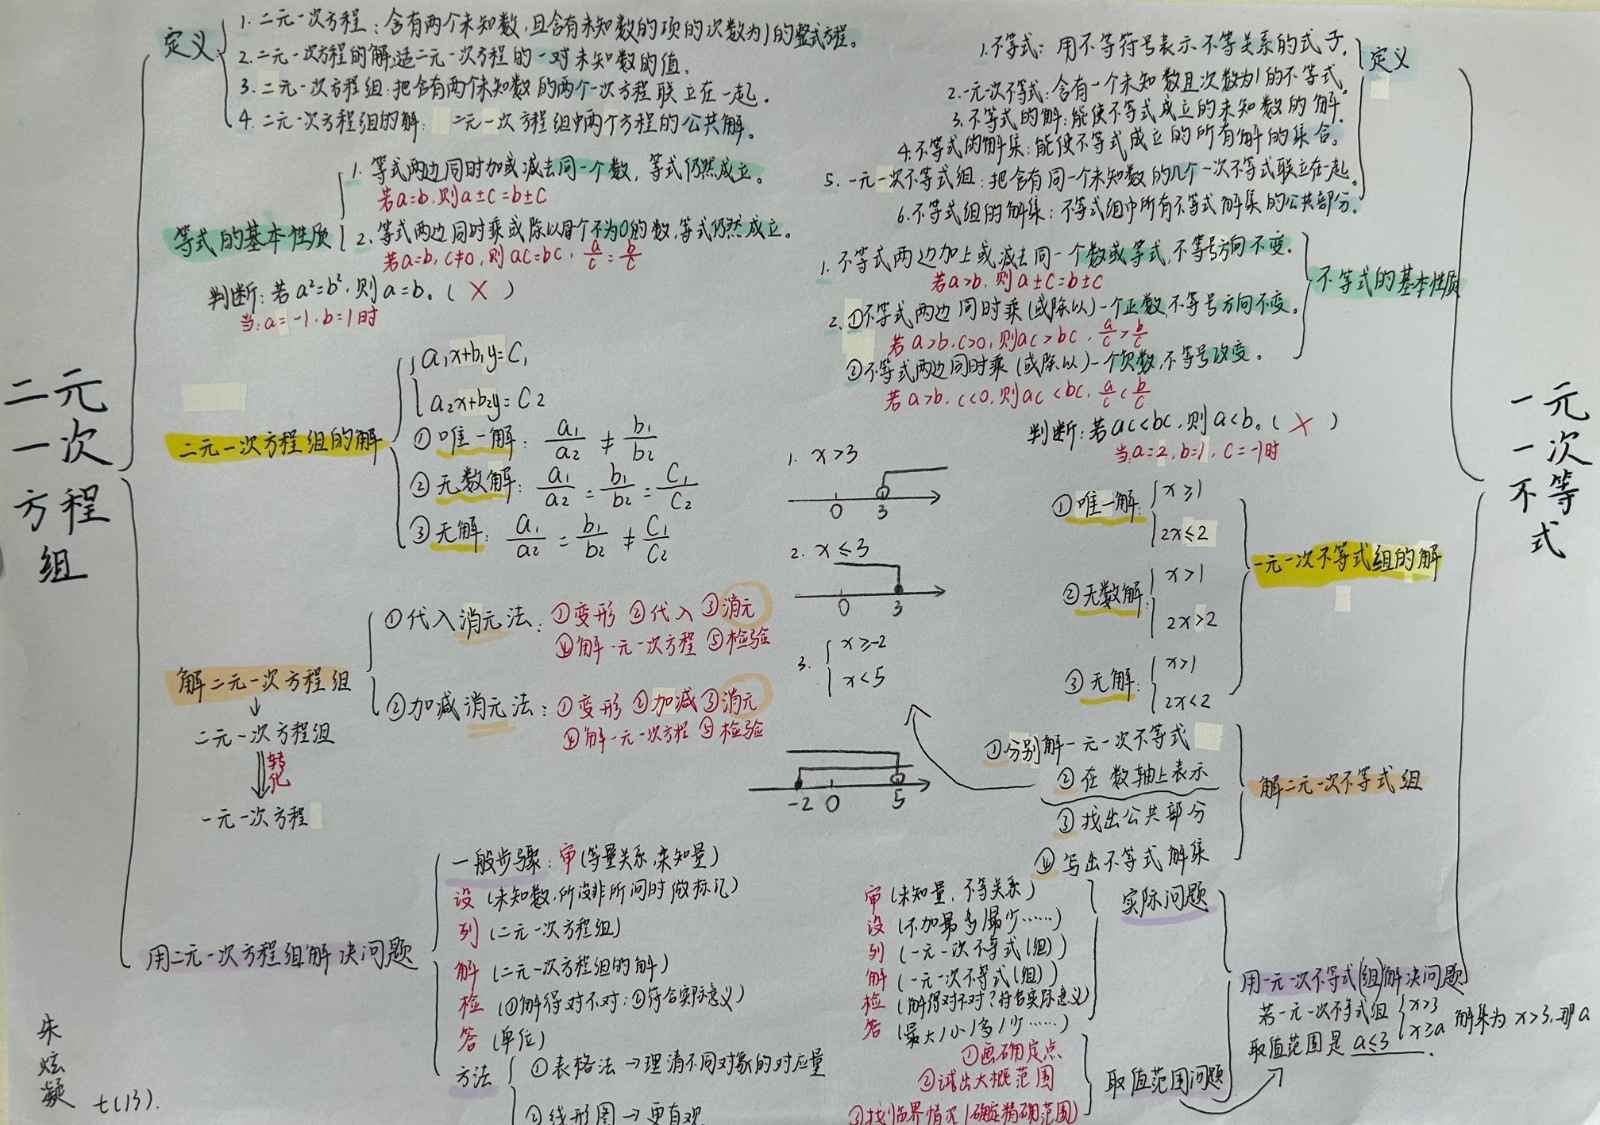 二元一次方程组
定义
1. 二元一次方程：含有两个未知数，且含有未知数的项的次数为1的整式方程。
2. 二元一次方程的解：适二元一次方程的一对未知数的值。
3. 二元一次方程组：把含有两个未知数的两个一次方程联立在一起。
4. 二元一次方程组的解：二元一次方程组中两个方程的公共解。
等式的基本性质
1. 等式两边同时加或减去同一个数，等式仍然成立。
若a=b，则a±c=b±c
2. 等式两边同时乘或除以同个不为0的数，等式仍然成立。
若a=b，c≠0，则ac=bc，a/c=b/c
判断：若a²=b²，则a=b。（×）
当：a=-1，b=1时
二元一次方程组的解
a₁x+b₁y=C₁
a₂x+b₂y=C₂
①唯一解：a₁/a₂≠b₁/b₂
②无数解：a₁/a₂=b₁/b₂=C₁/C₂
③无解：a₁/a₂=b₁/b₂≠C₁/C₂
解二元一次方程组
↓
二元一次方程组
转化
一元一次方程
①代入消元法：①变形 ②代入 ③消元
④解一元一次方程 ⑤检验
②加减消元法：①变形 ②加减 ③消元
④解一元一次方程 ⑤检验
用二元一次方程组解决问题
一般步骤：审（等量关系，未知量）
设（未知数，所设非所问时做标记）
列（二元一次方程组）
解（二元一次方程组的解）
检（①解得对不对；②符合实际意义）
答（单位）
方法
①表格法→理清不同对象的对应量
②线形图→更直观
朱炫凝
七(13).
一元一次不等式
定义
1. 不等式：用不等符号表示不等关系的式子。
2. 一元次不等式：含有一个未知数且次数为1的不等式。
3. 不等式的解：能使不等式成立的未知数的解.
4. 不等式的解集：能使不等式成立的所有解的集合。
5. 一元一次不等式组：把含有同一个未知数的几个一次不等式联立在一起。
6. 不等式组的解集：不等式组中所有不等式解集的公共部分。
不等式的基本性质
1. 不等式两边加上或减去同一个数或等式，不等号方向不变。
若a>b，则a±c=b±c
2. ①不等式两边同时乘（或除以）一个正数，不等号方向不变。
若a>b，c>0，则ac>bc，a/c>b/c
②不等式两边同时乘（或除以）一个负数，不等号改变。
若a>b，c<0，则ac<bc，a/c<b/c
判断：若ac<bc，则a<b。（×）
当：a=2，b=1，c=-1时
1. x>3
0 3
2. x≤3
0 3
3. x≥-2
x<5
-2 0 5
一元一次不等式组的解
①唯一解：x≥1
2x≤2
②无数解：x>1
2x>2
③无解：x>1
2x<2
解二元一次不等式组
①分别解一元一次不等式
②在数轴上表示
③找出公共部分
④写出不等式解集
用一元一次不等式(组)解决问题
实际问题
审（未知量，不等关系）
设（不加最多/最少……）
列（一元一次不等式(组)）
解（一元一次不等式(组)）
检（解得对不对？符合实际意义）
答（最大/小/多/少……）
取值范围问题
①画确定点
②试出大概范围
③找临界情况（确定精确范围）
若一元一次不等式组 x>3
x≥a 解集为x>3，那a
取值范围是a≤3.